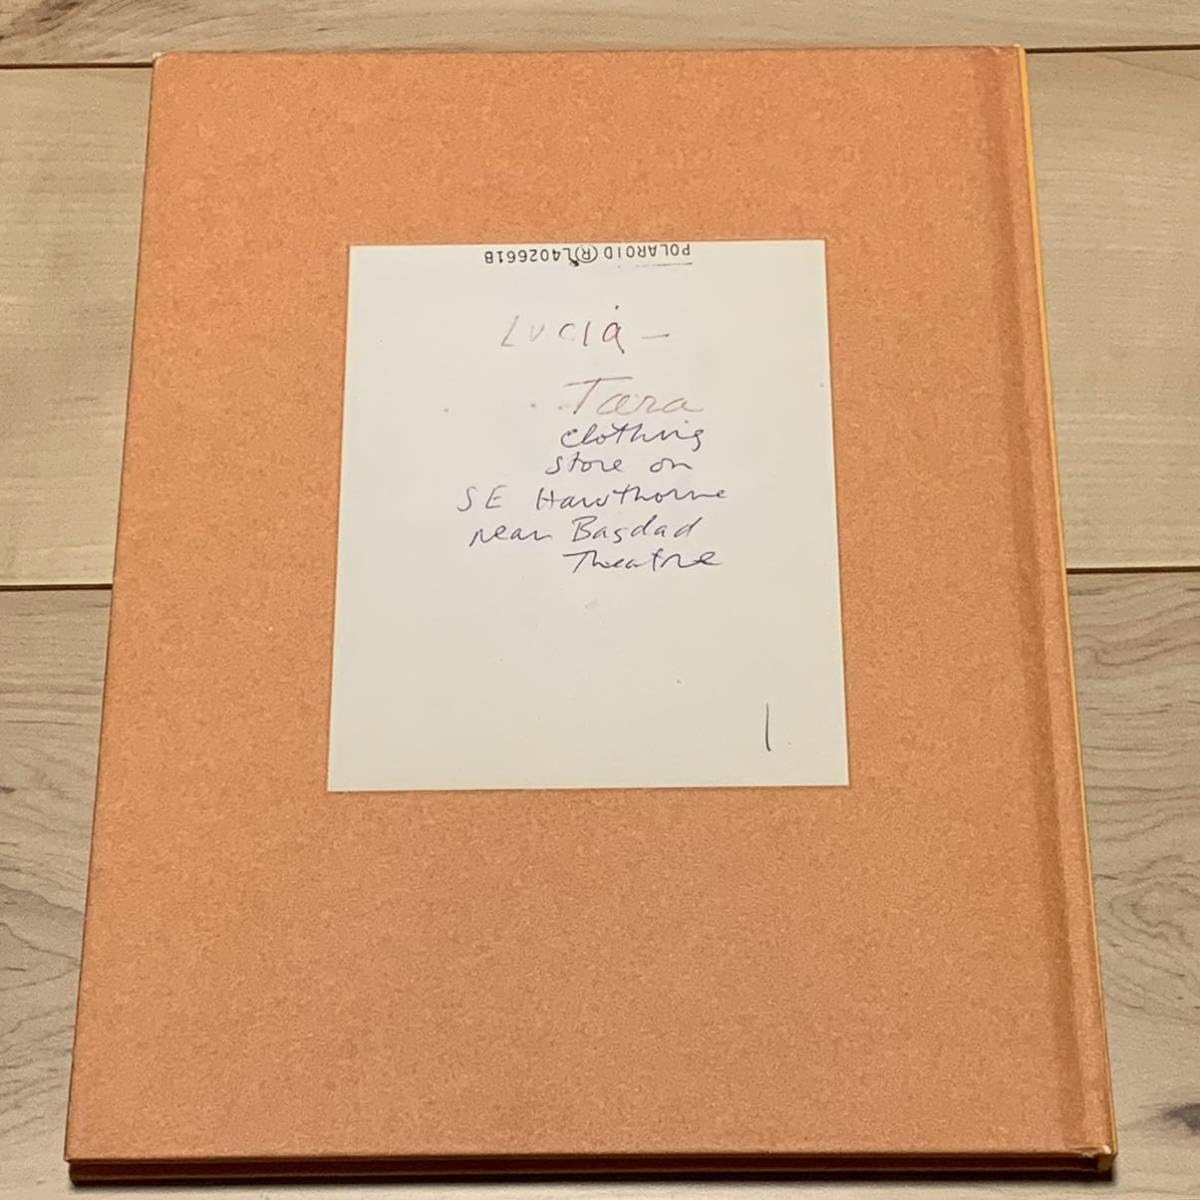 POLAROID (R) L402661B
Lucia —
Tara
clothing
store on
SE Hawthorne
near Bagdad
Theatre